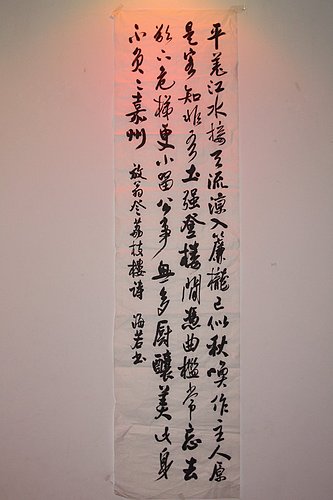 平羌江水接天流涼入簾櫳已似秋喚作主人原
是客知非吾土强登樓閒憑曲檻常忘去
欲下危梯更小留公事無多厨釀美此身
不負〻嘉州
放翁登荔枝樓詩 海若書